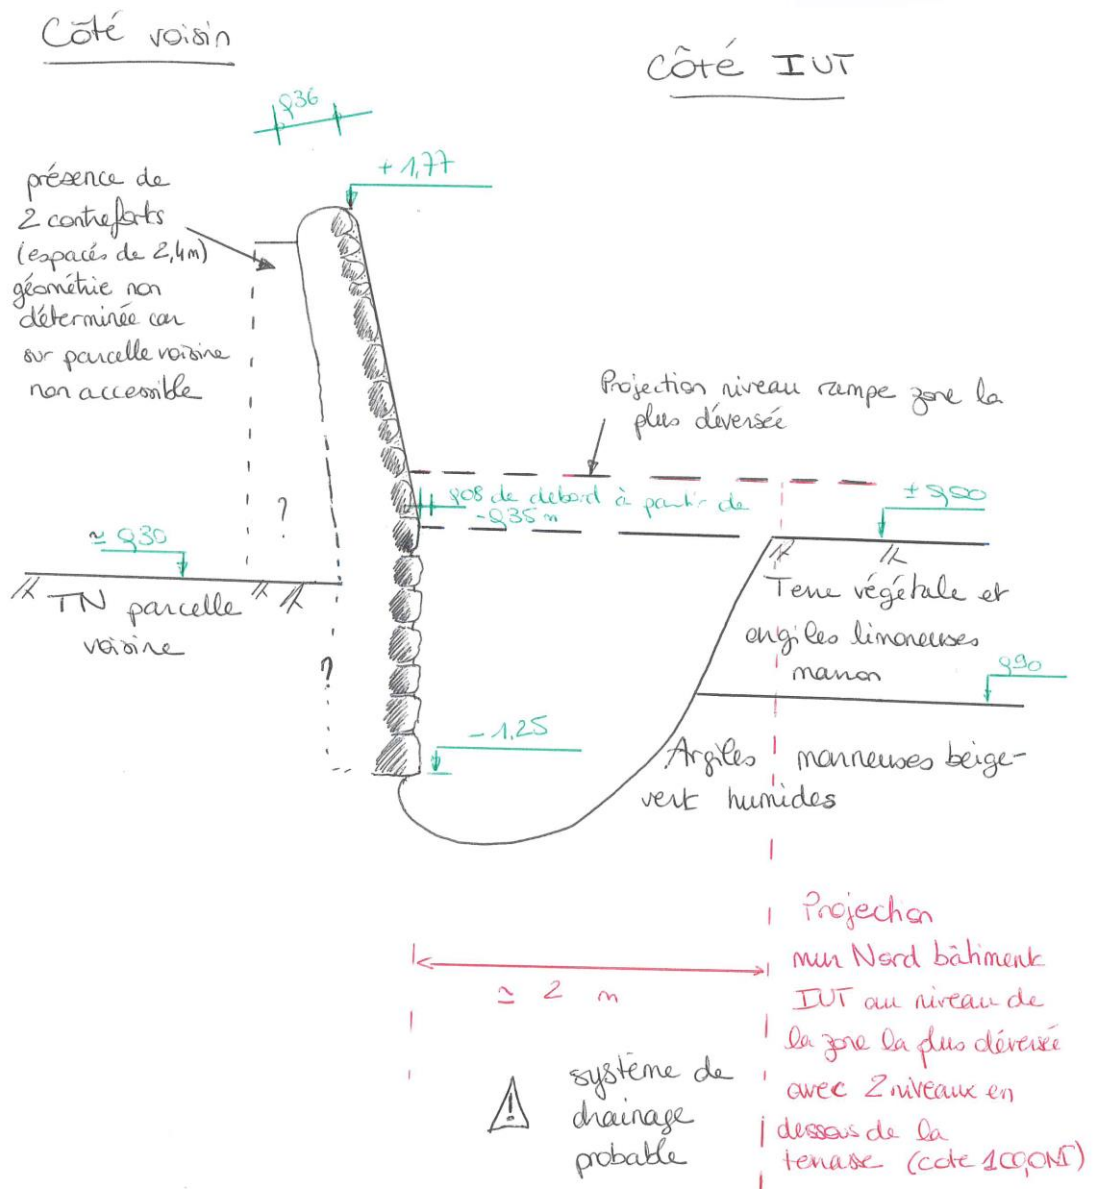 Côté voisin
Côté IUT
0,36
+ 1,77
présence de
2 contreforts
(espacés de 2,4m)
géométrie non
déterminée car
sur parcelle voisine
non accessible
Projection niveau rampe zone la
plus déversée
0,08 de débord à partir de
-0,35 m
± 0,00
?
≃ 0,30
TN parcelle
voisine
Terre végétale et
argiles limoneuses
marron
0,90
?
- 1,25
Argiles marneuses beige-
vert humides
≃ 2 m
Projection
mur Nord bâtiment
IUT au niveau de
la zone la plus déversée
avec 2 niveaux en
dessous de la
terrasse (cote
!
système de
drainage
probable